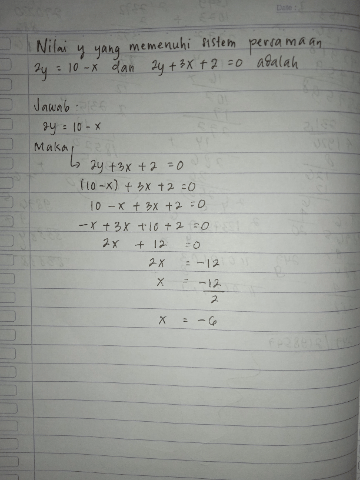 Nilai y yang memenuhi sistem persamaan
2y = 10 - x dan 2y + 3x + 2 = 0 adalah
Jawab :
2y = 10 - x
Maka,
↳ 2y + 3x + 2 = 0
(10 - x) + 3x + 2 = 0
10 - x + 3x + 2 = 0
-x + 3x + 10 + 2 = 0
2x + 12 = 0
2x = -12
x = -12
2
x = -6